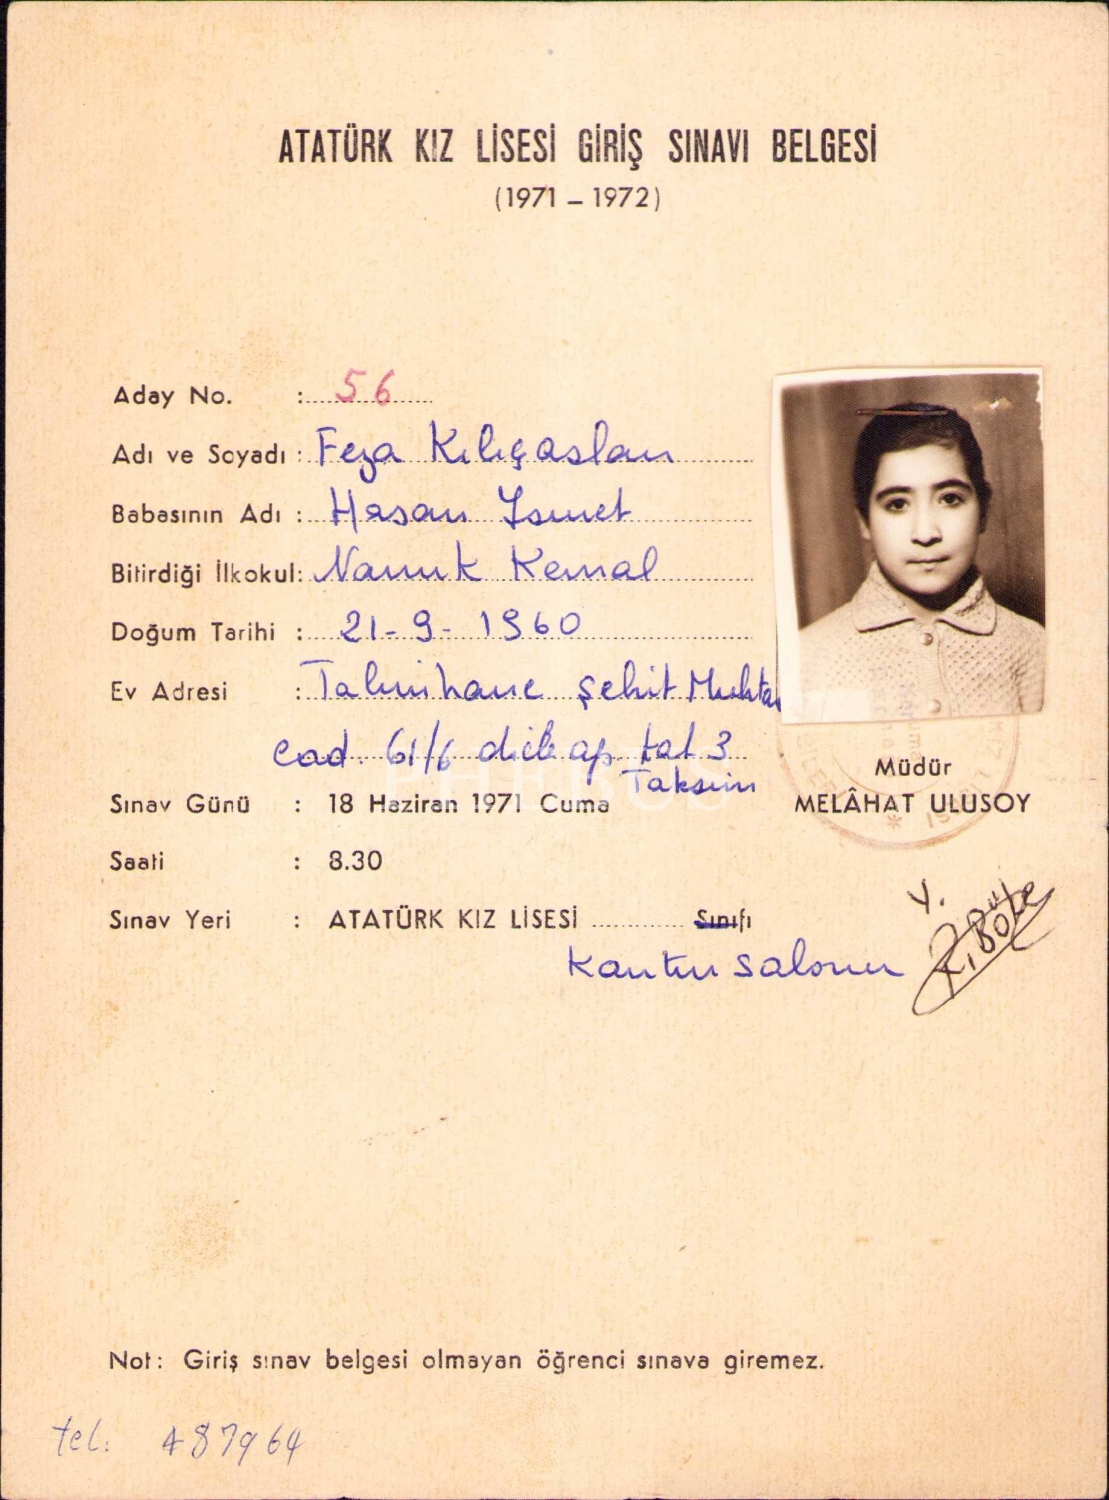 ATATÜRK KIZ LİSESİ GİRİŞ SINAVI BELGESİ
(1971 – 1972)
Aday No. : 56
Adı ve Soyadı : Feza Kılıçaslan
Babasının Adı : Hasan İsmet
Bitirdiği İlkokul: Namık Kemal
Doğum Tarihi : 21-9-1960
Ev Adresi : Talimhane Şehit Muhta
cad. 61/6 ap. kat 3
Taksim
Sınav Günü : 18 Haziran 1971 Cuma
Saati : 8.30
Sınav Yeri : ATATÜRK KIZ LİSESİ ............... Sınıfı
Kantin salonu
Müdür
MELÂHAT ULUSOY
Y.
PHEBUS
Not: Giriş sınav belgesi olmayan öğrenci sınava giremez.
tel: 487964